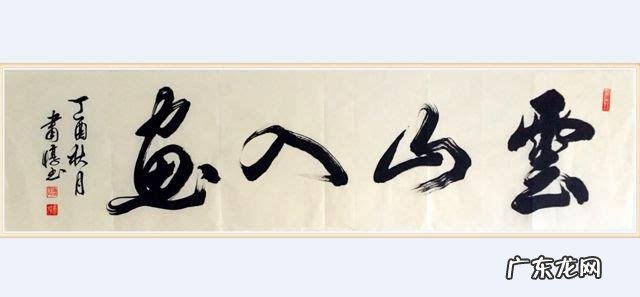 雲山入畫
丁酉秋月
书
广东龙网